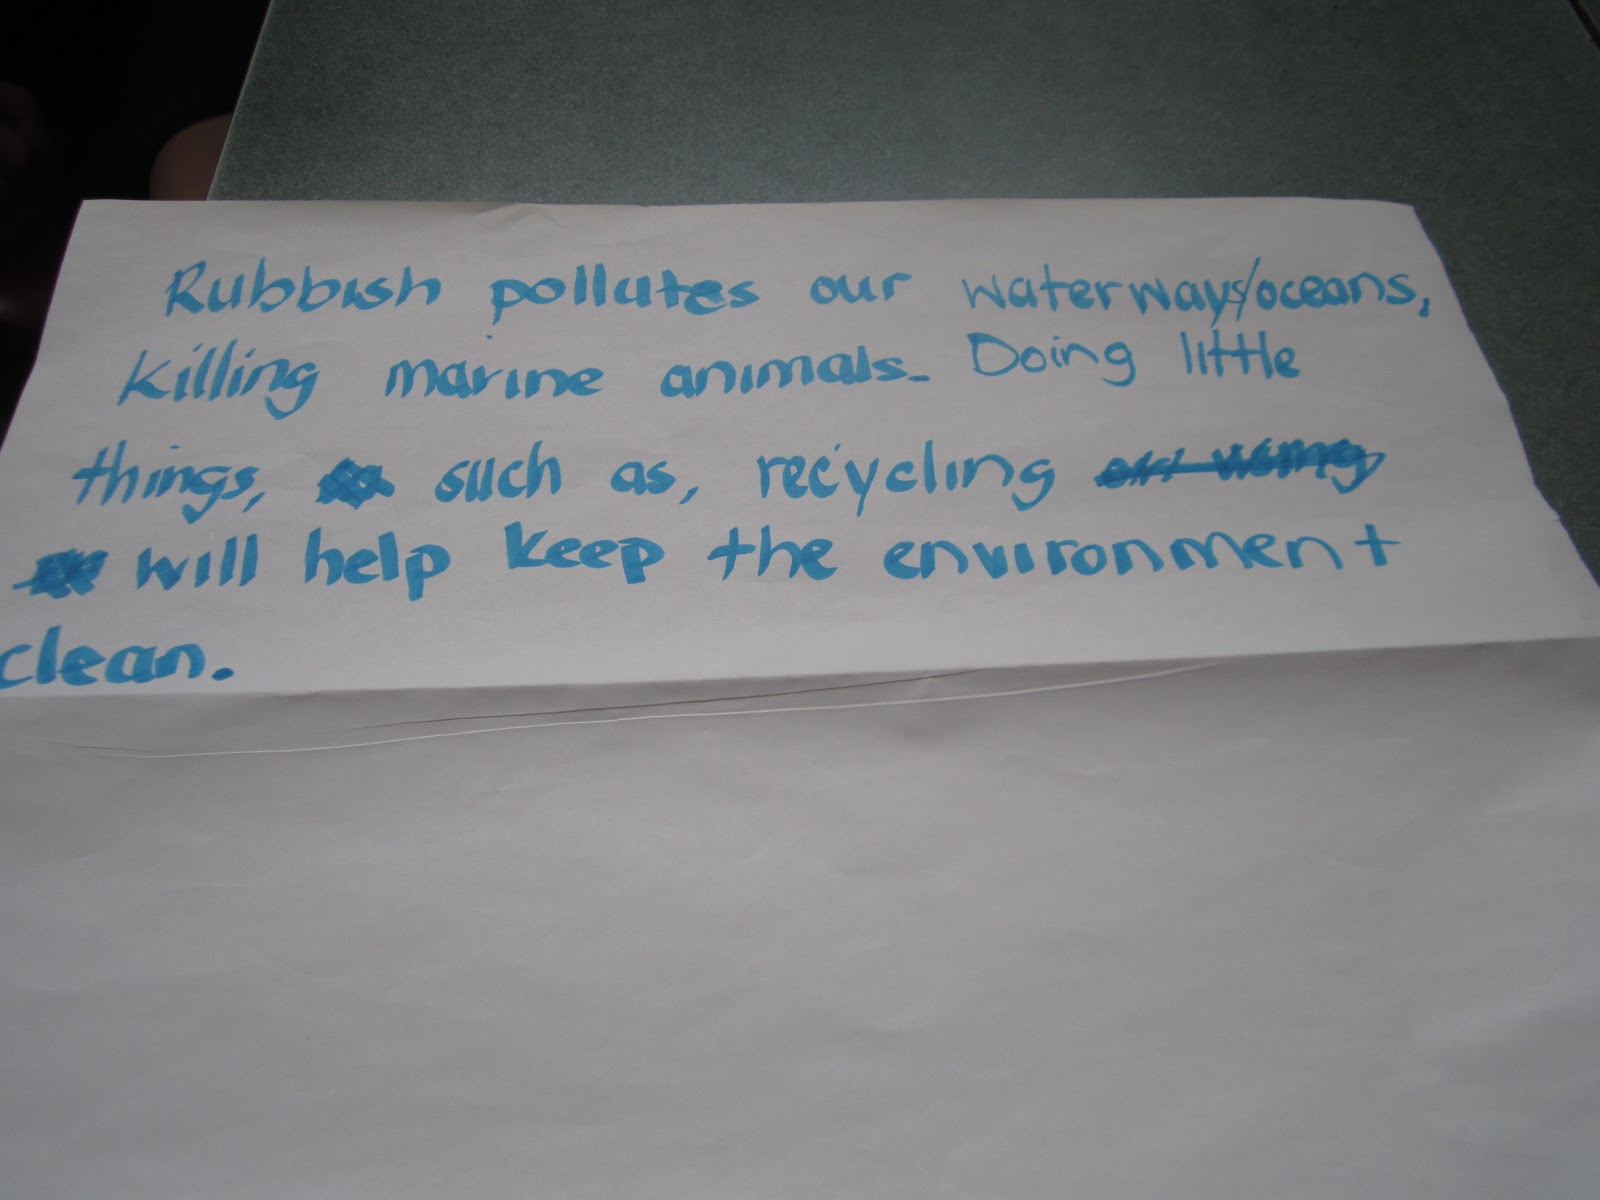 Rubbish pollutes our waterways/oceans,
killing marine animals. Doing little
things, such as, recycling
will help keep the environment
clean.